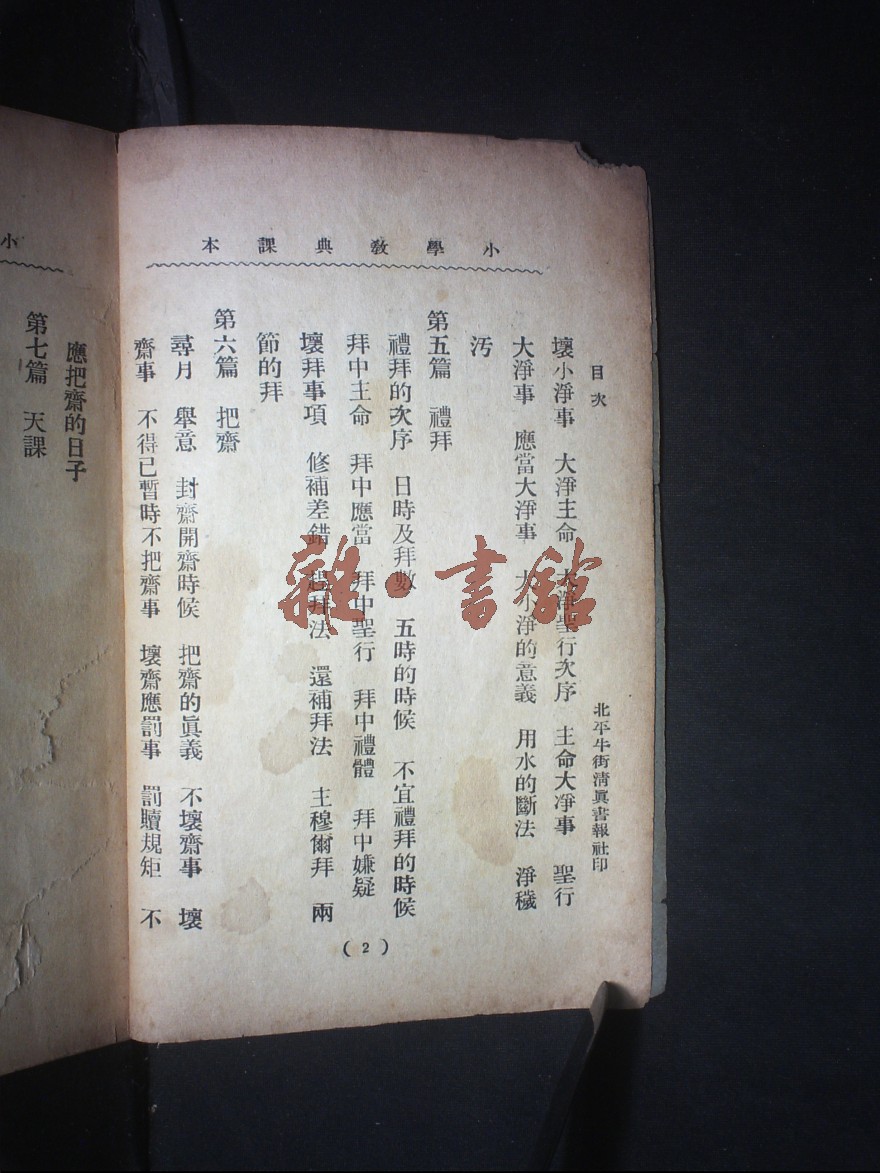 小學教典課本
目次
北平牛街清眞書報社印
壞小淨事　大淨主命　大淨聖行次序　主命大淨事　聖行
大淨事　應當大淨事　大小淨的意義　用水的斷法　淨穢
汚
第五篇　禮拜
禮拜的次序　日時及拜數　五時的時候　不宜禮拜的時候
拜中主命　拜中應當　拜中聖行　拜中禮體　拜中嫌疑
壞拜事項　修補差錯　趕拜法　還補拜法　主穆爾拜　兩
節的拜
第六篇　把齋
尋月　舉意　封齋開齋時候　把齋的眞義　不壞齋事　壞
齋事　不得已暫時不把齋事　壞齋應罰事　罰贖規矩　不
(2)
小
應把齋的日子
第七篇　天課
雜·書館